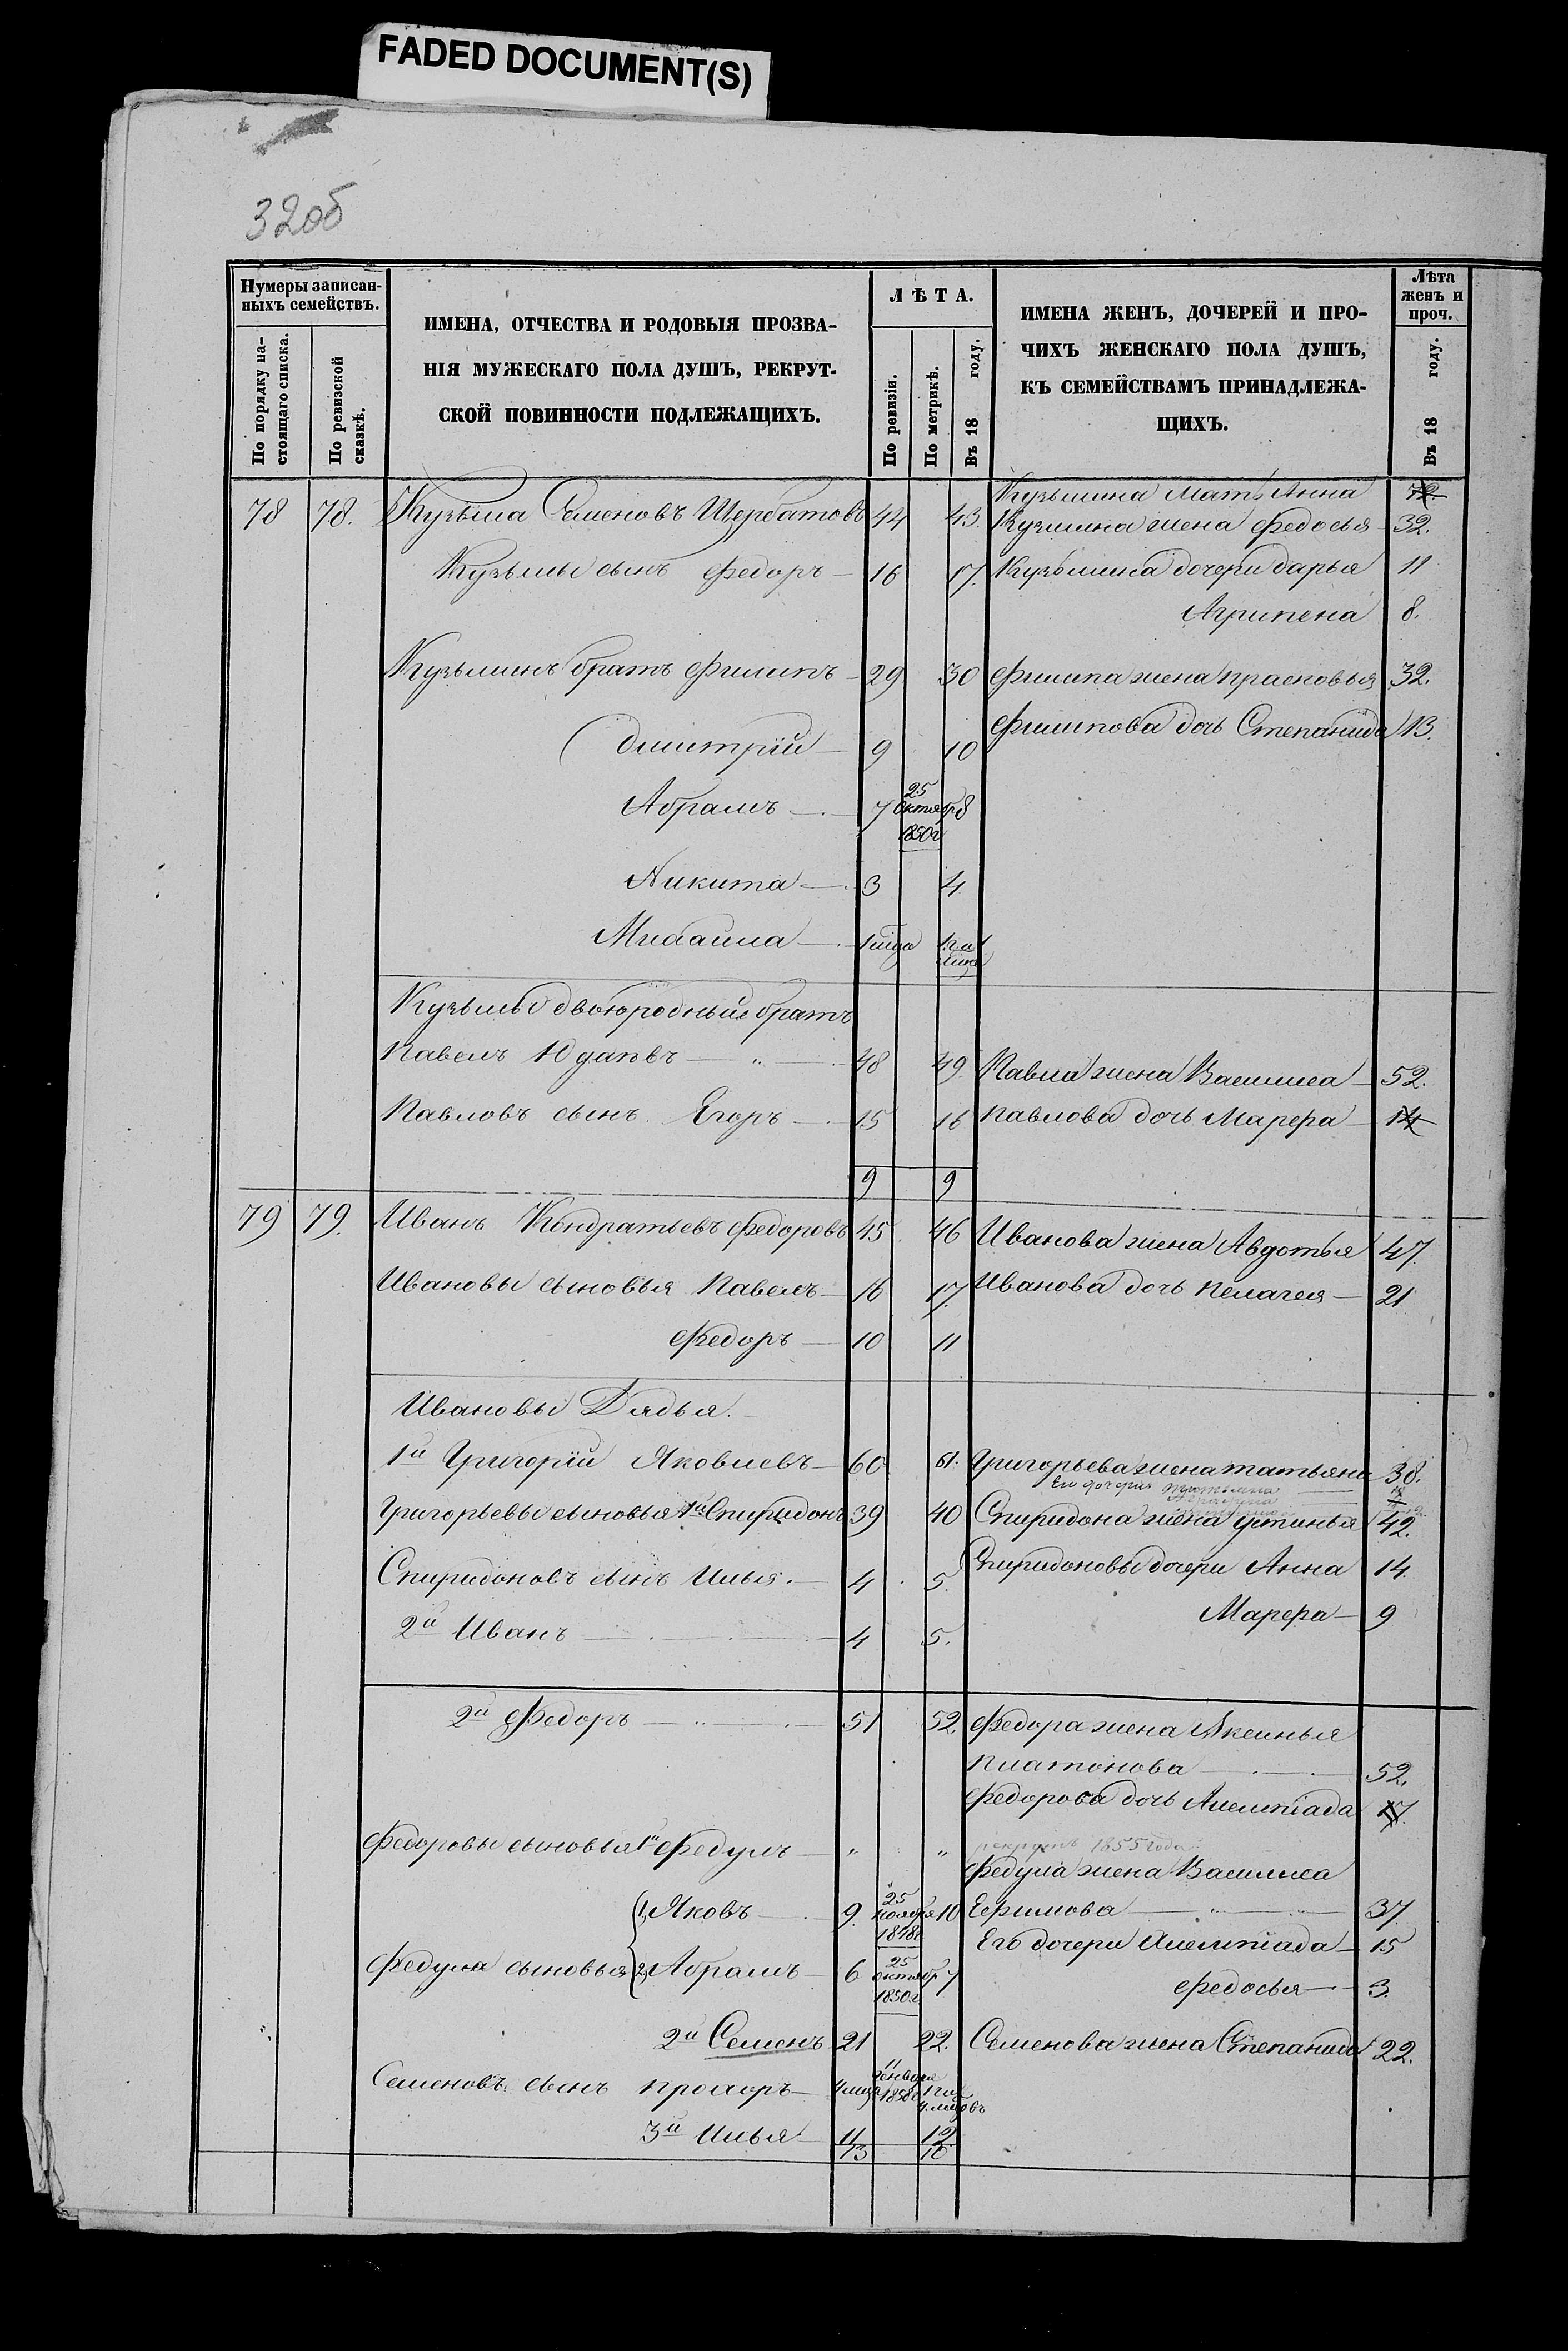 FADED DOCUMENT(S)
32об
Нумеры записан-
ныхъ семействъ.
По порядку на-
стоящаго списка.
По ревизской
сказкѣ.
ИМЕНА, ОТЧЕСТВА И РОДОВЫЯ ПРОЗВА-
НІЯ МУЖЕСКАГО ПОЛА ДУШЪ, РЕКРУТ-
СКОЙ ПОВИННОСТИ ПОДЛЕЖАЩИХЪ.
ЛѢТА.
По ревизіи.
По метрикѣ.
Въ 18 году.
ИМЕНА ЖЕНЪ, ДОЧЕРЕЙ И ПРО-
ЧИХЪ ЖЕНСКАГО ПОЛА ДУШЪ,
КЪ СЕМЕЙСТВАМЪ ПРИНАДЛЕЖА-
ЩИХЪ.
Лѣта
женъ и
проч.
Въ 18 году.
Кузьмина мать Анна
78 78. Кузьма Семеновъ Щербатовъ 44 43. Кузмина жена Федосья 32.
Кузьмы сынъ Федоръ 16 17. Кузьмина дочери дарья 11
Агрипена 8.
Кузьминъ братъ Филипъ 29 30 Филипа жена прасковья 32.
Филипова дочь Степанида 13.
Дмитрій 9 10
Абрамъ 7 25 октябр 1850г 8
Никита 3 4
Михаила 1 мца
Кузьмы двоюродные братъ
Павелъ 48 49 Павла жена Василиса 52.
Павловъ сынъ Егоръ 15 16 Павлова дочь Марфа 14
9 9
79 79. Иванъ Кондратьевъ Федоровъ 45 46 Иванова жена Авдотья 47.
Ивановы сыновья Павелъ 16 17. Иванова дочь пелагея 21
Федоръ 10 11
Ивановы Дядья.
1й Григорій Яковлевъ 60 61. Григорьева жена татьяна 38.
Его дочери
Григорьевы сыновья 1й Спиридонъ 39 40 Спиридона жена устинья 42.
Спиридоновъ сынъ Илья. 4 5. Спиридоновы дочери Анна 14.
Марфа 9
2й Иванъ 4 5.
2й Федоръ 51 52. Федора жена Аксинья
платонова 52.
Федорова дочь Алемпіада 17.
Федоровы сыновья 1й Федулъ " " рекрутъ 1855 года
Федула жена Василиса
1, Яковъ 9. 25 ноября 1848г 10 Ефимова 37.
Его дочери Алемпіада 15
Федула сыновья 2, Абрамъ 6 25 октябр 1850.г 7
Федосья 3.
2й Семенъ 21 22. Семенова жена Степанида 22.
Семеновъ сынъ прохоръ 4 мца 11 генваря 1858г 1 г и 4. мцовъ
3й Илья 11 12
13